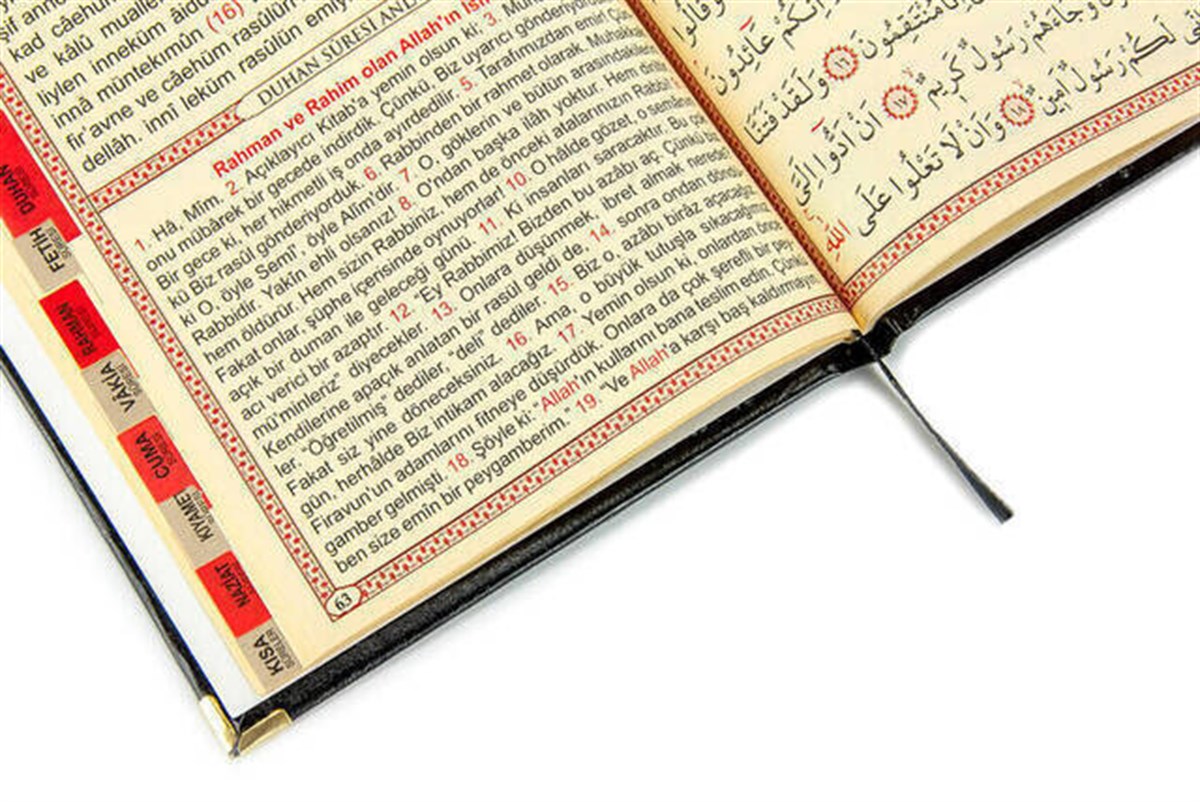 kad câehum
ve kâlû mualle
iylen inneküm âidû
innâ müntekımûn (16)
fir'avne ve câehüm rasûlün
dellâh. innî leküm rasûlün emiy
DUHAN SÛRESİ
Rahman ve Rahim olan Allah'ın
1. Hâ, Mîm. 2. Açıklayıcı Kitab'a yemin olsun ki; 3.
onu mübârek bir gecede indirdik. Çünkü, Biz uyarıcı gönderiyor
Bir gece ki, her hikmetli iş onda ayırdedilir. 5. Tarafımızdan emir!
kü Biz rasûl gönderiyorduk. 6. Rabbinden bir rahmet olarak.
ki O, öyle Semî', öyle Alîm'dir. 7. O, göklerin ve bütün arasındakile
Rabbidir. Yakîn ehli olsanız! 8. O'ndan başka ilâh yoktur. Hem
hem öldürür. Hem sizin Rabbiniz, hem de önceki atalarınızın Rabbi
Fakat onlar, şüphe içerisinde oynuyorlar! 10. O hâlde gözet, o
açık bir duman ile geleceği günü. 11. Ki insanları saracaktır. Bu
acı verici bir azaptır. 12. "Ey Rabbimiz! Bizden bu azâbı aç Çünkü
mü'minleriz" diyecekler. 13. Onlara düşünmek, ibret almak nerede
Kendilerine apaçık anlatan bir rasûl geldi de, 14. sonra ondan
ler. "Öğretilmiş" dediler, "deli" dediler. 15. Biz o, azâbı birâz açacağız
Fakat siz yine döneceksiniz. 16. Ama, o büyük tutuşla sıkacağım
gün, herhâlde Biz intikam alacağız. 17. Yemin olsun ki, onlardan önce
Firavun'un adamlarını fitneye düşürdük. Onlara da çok şerefli bir
gamber gelmişti. 18. Şöyle ki: "Allah'ın kullarını bana teslim edin. Çünkü
ben size emîn bir peygamberim." 19. "Ve Allah'a karşı baş kaldırmayı
63
DUHAN
FETİH
RAHMAN
VAKIA
CUMA
KIYAME
NAZİAT
KISA
SÛRELER
وَقَالُوا
اِنَّكُمْ عَٓائِدُونَ
مُنْتَقِمُونَ ١٦ وَلَقَدْ فَتَنَّا
وَجَٓاءَهُمْ رَسُولٌ كَرِيمٌ ١٧ اَنْ اَدُّٓوا اِلَيَّ
لَكُمْ رَسُولٌ اَمِينٌ ١٨ وَاَنْ لَا تَعْلُوا عَلَى
اللّٰهِ